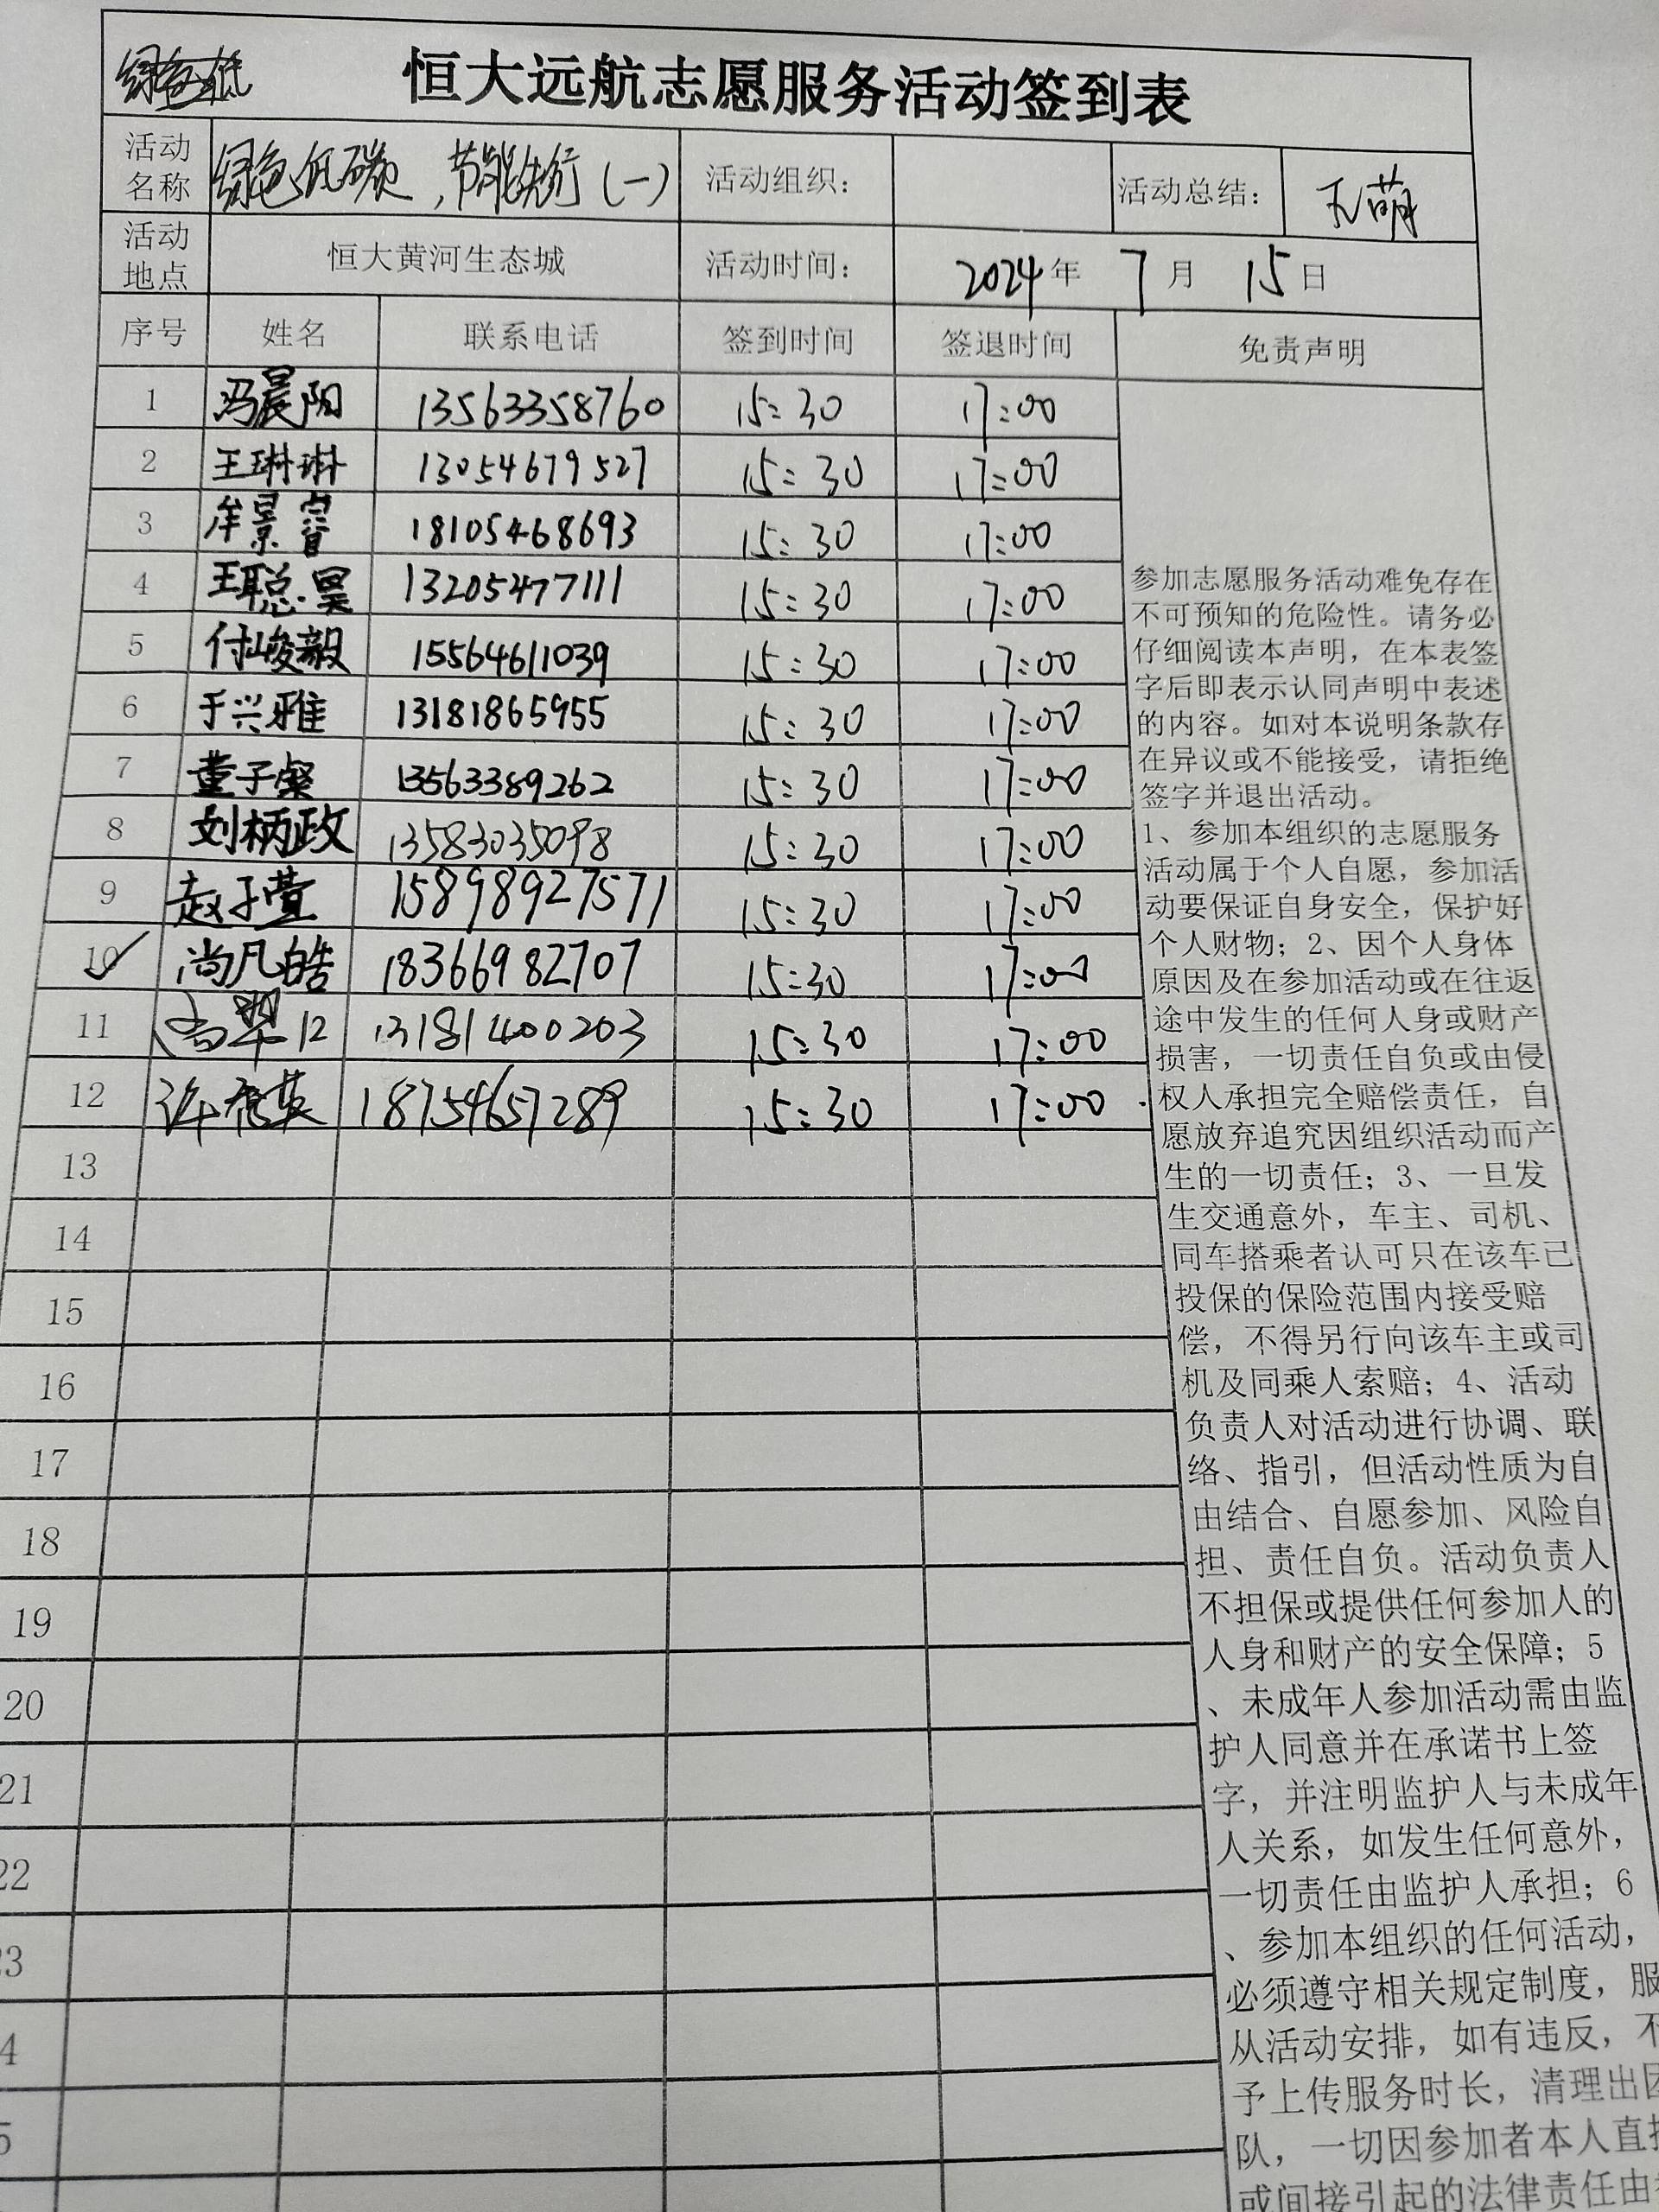 恒大远航志愿服务活动签到表
活动名称 绿色低碳，节能先行（一） 活动组织： 活动总结： 天萌
活动地点 恒大黄河生态城 活动时间： 2024年 7月 15日
序号 姓名 联系电话 签到时间 签退时间 免责声明
1 冯晨阳 13563358760 15:30 17:00
2 王琳琳 13054679527 15:30 17:00
3 牟景睿 18105468693 15:30 17:00
4 王聪昊 13205477111 15:30 17:00
5 付峻毅 15564611039 15:30 17:00
6 于兴雅 13181865955 15:30 17:00
7 董子粲 13563389262 15:30 17:00
8 刘柄政 13583035098 15:30 17:00
9 赵子萱 15898927571 15:30 17:00
10 尚凡皓 18366982707 15:30 17:00
11 13181400203 15:30 17:00
12 18754657289 15:30 17:00
13
14
15
16
17
18
19
20
21
22
23
4
5
参加志愿服务活动难免存在
不可预知的危险性。请务必
仔细阅读本声明，在本表签
字后即表示认同声明中表述
的内容。如对本说明条款存
在异议或不能接受，请拒绝
签字并退出活动。
1、参加本组织的志愿服务
活动属于个人自愿，参加活
动要保证自身安全，保护好
个人财物；2、因个人身体
原因及在参加活动或在往返
途中发生的任何人身或财产
损害，一切责任自负或由侵
权人承担完全赔偿责任，自
愿放弃追究因组织活动而产
生的一切责任；3、一旦发
生交通意外，车主、司机、
同车搭乘者认可只在该车已
投保的保险范围内接受赔
偿，不得另行向该车主或司
机及同乘人索赔；4、活动
负责人对活动进行协调、联
络、指引，但活动性质为自
由结合、自愿参加、风险自
担、责任自负。活动负责人
不担保或提供任何参加人的
人身和财产的安全保障；5
、未成年人参加活动需由监
护人同意并在承诺书上签
字，并注明监护人与未成年
人关系，如发生任何意外，
一切责任由监护人承担；6
、参加本组织的任何活动，
必须遵守相关规定制度，服
从活动安排，如有违反，不
予上传服务时长，清理出团
队，一切因参加者本人直接
或间接引起的法律责任由